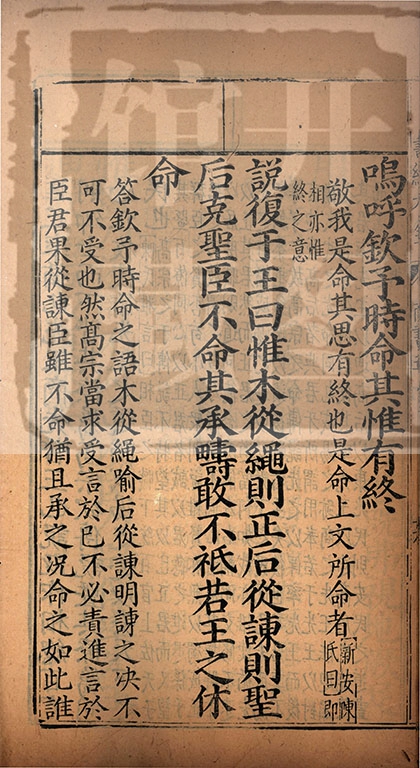 嗚呼欽予時命其惟有終
敬我是命其思有終也是命上文所命者新安陳
氏曰即
相亦惟
終之意
說復于王曰惟木從繩則正后從諫則聖
后克聖臣不命其承疇敢不祗若王之休
命
答欽予時命之語木從繩喻后從諫明諫之决不
可不受也然髙宗當求受言於已不必責進言於
臣君果從諫臣雖不命猶且承之况命之如此誰